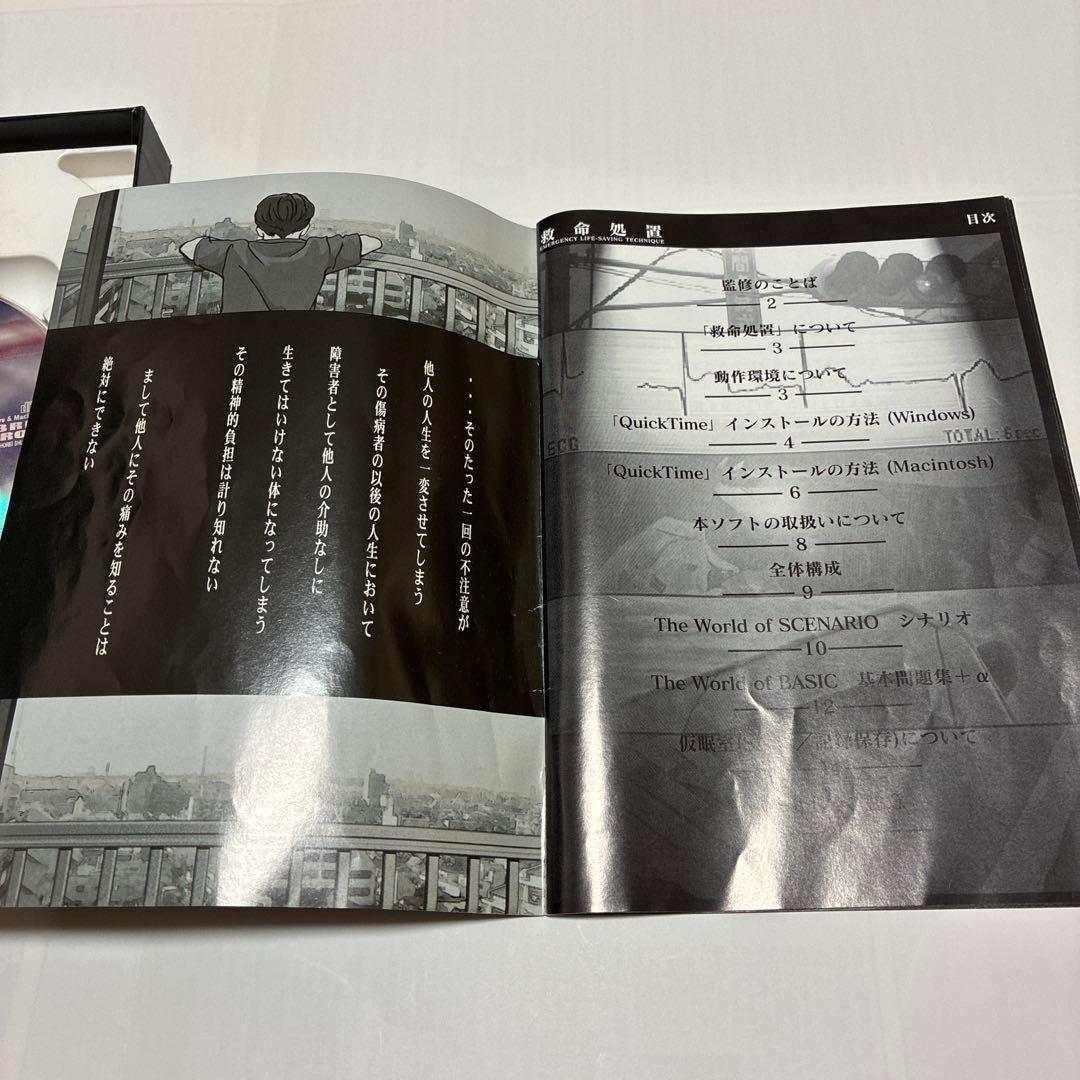 ・・・そのたった一回の不注意が
他人の人生を一変させてしまう
その傷病者の以後の人生において
障害者として他人の介助なしに
生きてはいけない体になってしまう
その精神的負担は計り知れない
まして他人にその痛みを知ることは
絶対にできない
救命処置
EMERGENCY LIFE-SAVING TECHNIQUE
目次
監修のことば
2
「救命処置」について
3
動作環境について
3
「QuickTime」インストールの方法 (Windows)
4
ECG
TOTAL:6sec
「QuickTime」インストールの方法 (Macintosh)
6
本ソフトの取扱いについて
8
全体構成
9
The World of SCENARIO シナリオ
10
The World of BASIC 基本問題集+α
12
仮眠室 記録保存)について